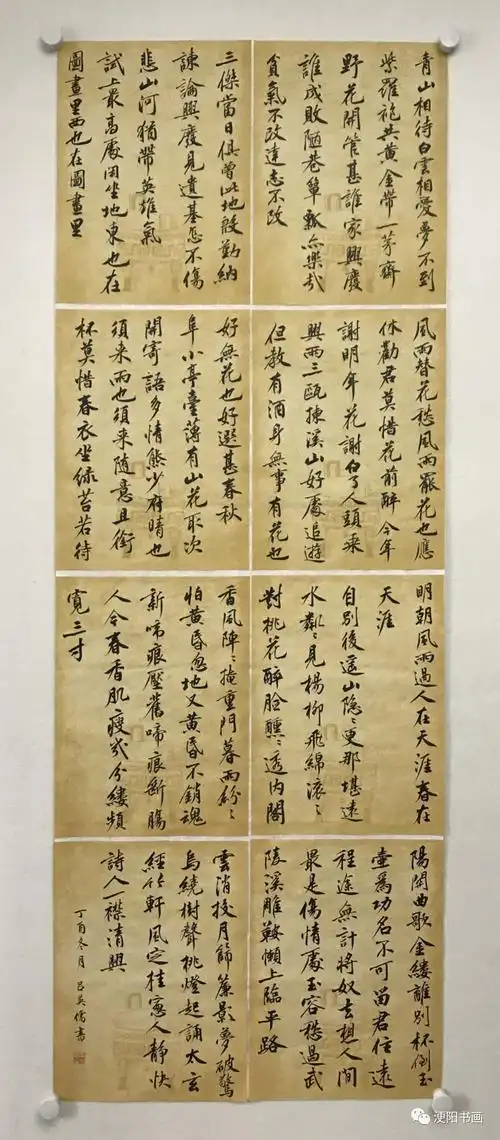 青山相待白雲相愛夢不到
紫羅袍共黃金帶一茅齋
野花開管甚誰家興廢
誰成敗陋巷簞瓢亦樂哉
貧氣不改達志不改
三傑當日俱曾此地殷勤納
諫論興廢見遺基怎不傷
悲山河猶帶英雄氣
試上最高處閑坐地東也在
圖畫里西也在圖畫里
風雨替花愁風雨罷花也應
休勸君莫惜花前醉今年
謝明年花謝白了人頭乘
興兩三甌揀溪山好處追遊
但教有酒身無事有花也
好無花也好選甚春秋
阜小亭臺薄有山花取次
開寄語多情熊少府晴也
須來雨也須來隨意且銜
杯莫惜春衣坐綠苔若待
明朝風雨過人在天涯春在
天涯
自別後遙山隱〻更那堪遠
水粼〻見楊柳飛綿滾〻
對桃花醉臉醺〻透內閣
香風陣〻掩重門暮雨紛〻
怕黃昏忽地又黃昏不銷魂
新啼痕壓舊啼痕斷腸
人今春香肌瘦幾分縷頻
寬三寸
陽關曲歌金縷離別杯倒玉
壺為功名不可留君住遠
程途無計將奴去想人間
最是傷情處玉容愁過武
陵溪雕鞍懶上臨平路
雲消投月篩簾影夢破驚
烏繞樹聲挑燈起誦太玄
經竹軒風定桂窗人靜快
詩人一襟清興
丁酉冬月 呂英儒書
浭阳书画